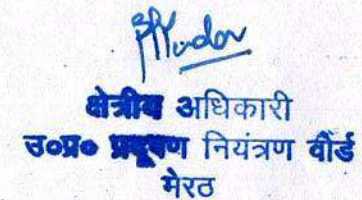 क्षेत्रीय अधिकारी
उ०प्र० प्रदूषण नियंत्रण बोर्ड
मेरठ